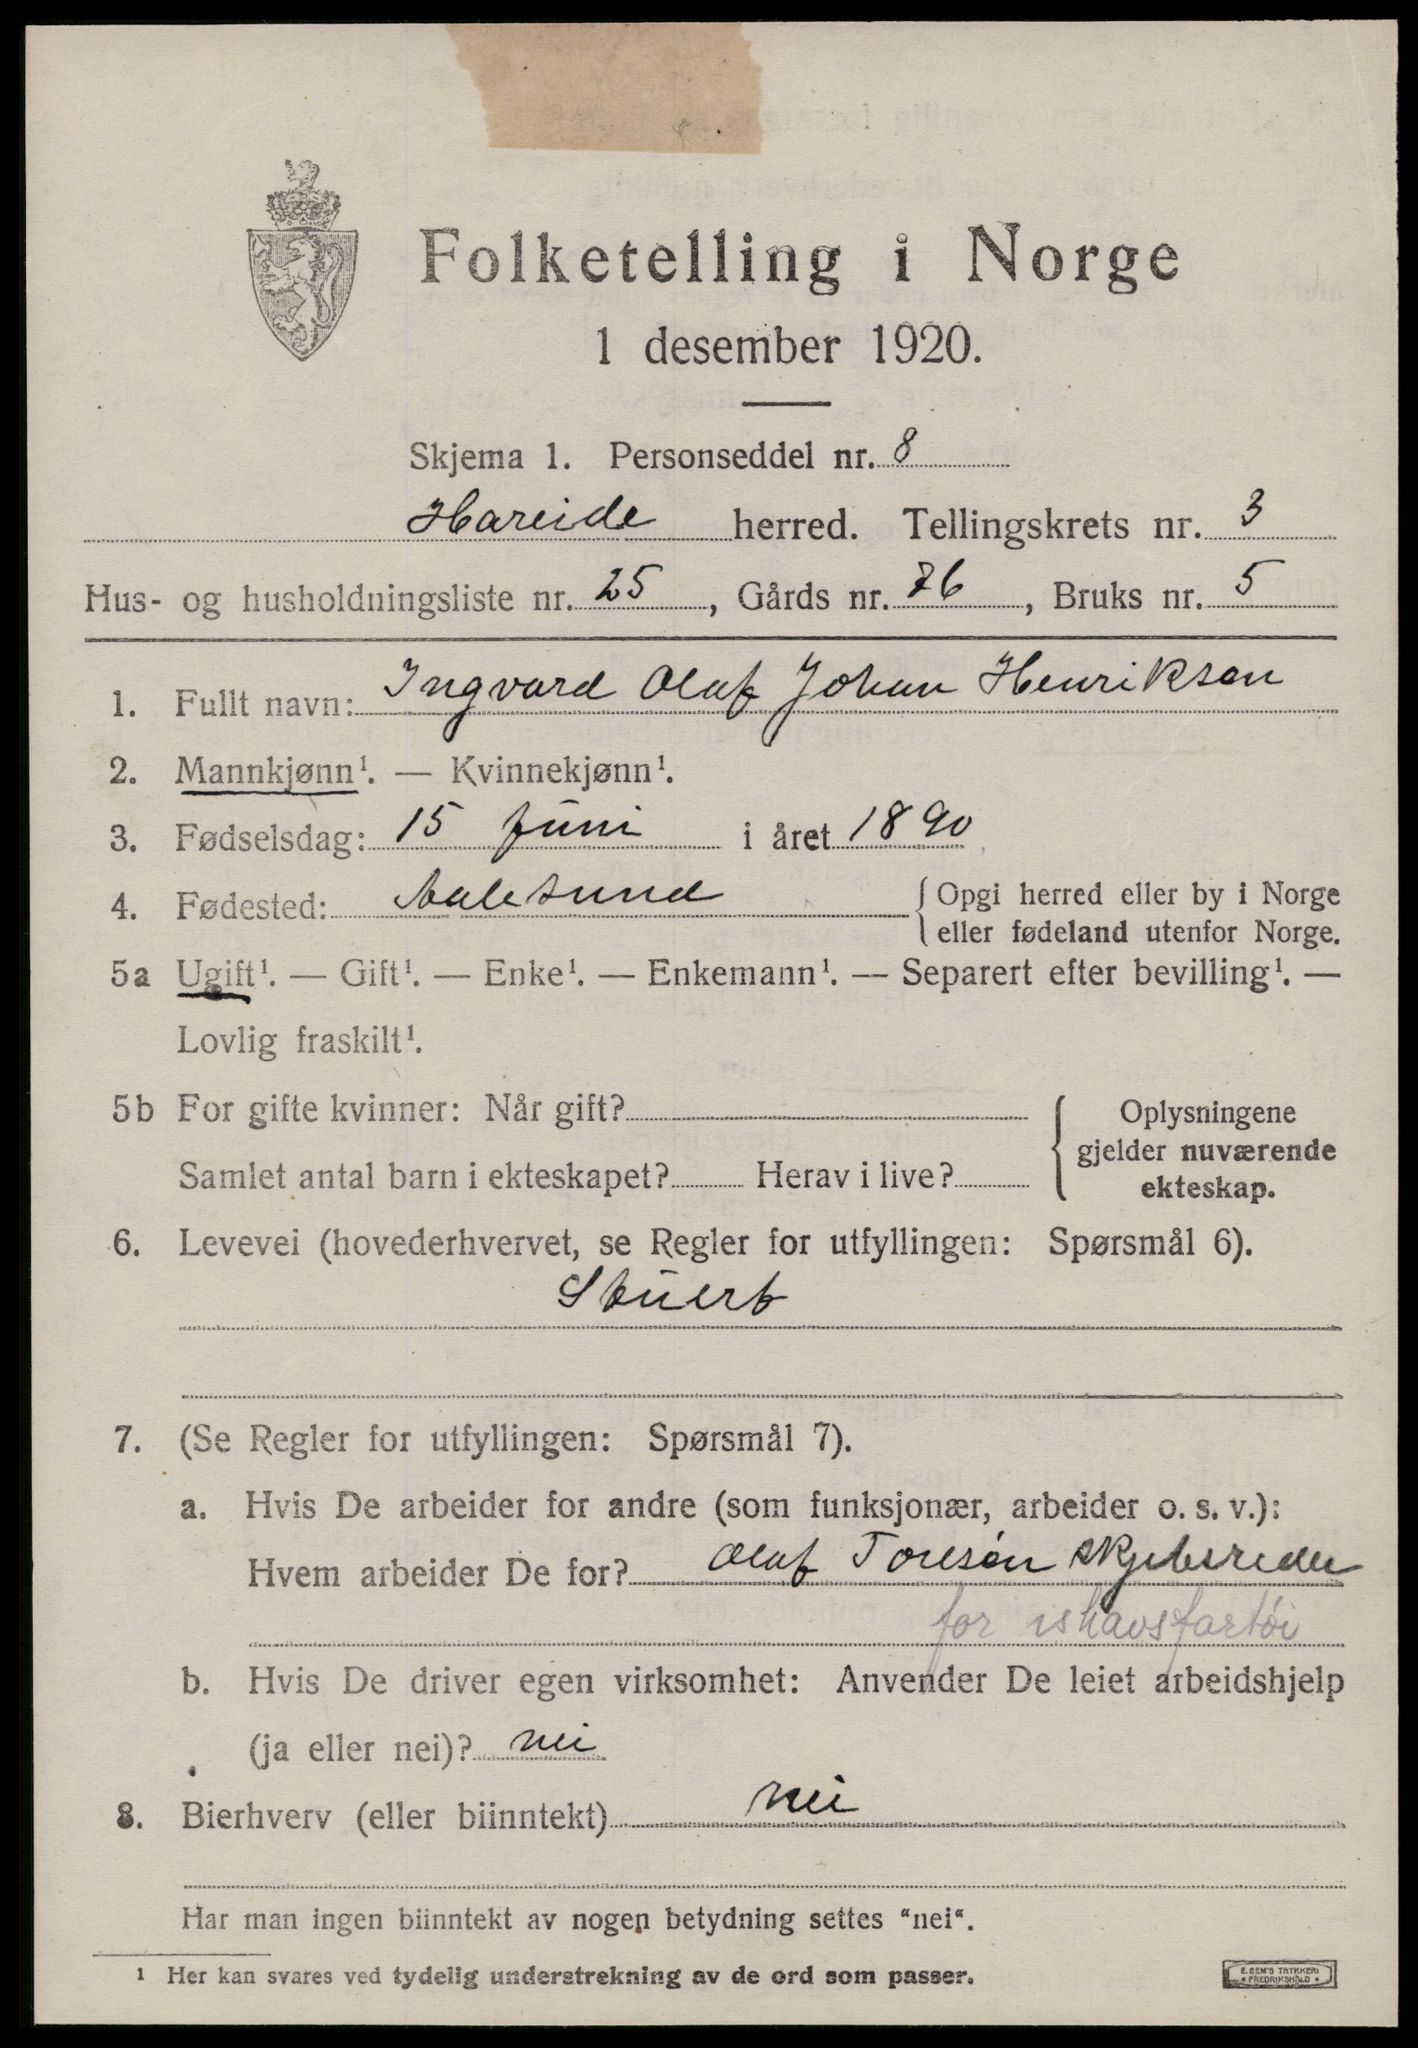 Folketelling i Norge
1 desember 1920.
Skjema 1. Personseddel nr. 8
Hareide herred. Tellingskrets nr. 3
Hus- og husholdningsliste nr. 25, Gårds nr. 76, Bruks nr. 5
1. Fullt navn: Ingvard Olaf Johan Henriksen
2. Mannkjønn¹. — Kvinnekjønn¹.
3. Fødselsdag: 15 juni i året 1890
4. Fødested: Aalesund { Opgi herred eller by i Norge
eller fødeland utenfor Norge.
5a Ugift¹. — Gift¹. — Enke¹. — Enkemann¹. — Separert efter bevilling¹. —
Lovlig fraskilt¹.
5b For gifte kvinner: Når gift?
Samlet antal barn i ekteskapet? Herav i live?
{ Oplysningene
gjelder nuværende
ekteskap.
6. Levevei (hovederhvervet, se Regler for utfyllingen: Spørsmål 6).
Stuert
7. (Se Regler for utfyllingen: Spørsmål 7).
a. Hvis De arbeider for andre (som funksjonær, arbeider o. s. v.):
Hvem arbeider De for? Olaf skjebsreder
for ishavsfartøi
b. Hvis De driver egen virksomhet: Anvender De leiet arbeidshjelp
(ja eller nei)? nei
8. Bierhverv (eller biinntekt) nei
Har man ingen biinntekt av nogen betydning settes "nei".
¹ Her kan svares ved tydelig understrekning av de ord som passer.
E. SEM'S TRYKKERI
FREDRIKSHALD